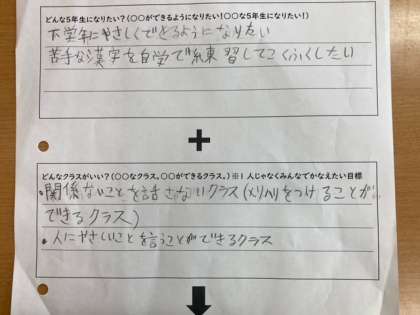 どんな5年生になりたい?(〇〇ができるようになりたい!〇〇な5年生になりたい!)
下学年にやさしくできるようになりたい
苦手な漢字を自学で練習してこくふくしたい
+
どんなクラスがいい?(〇〇なクラス。〇〇ができるクラス。)※1人じゃなくみんなでかなえたい目標
・関係ないことを話さないクラス(メリハリをつけることが
できるクラス)
・人にやさしいことを言うことができるクラス